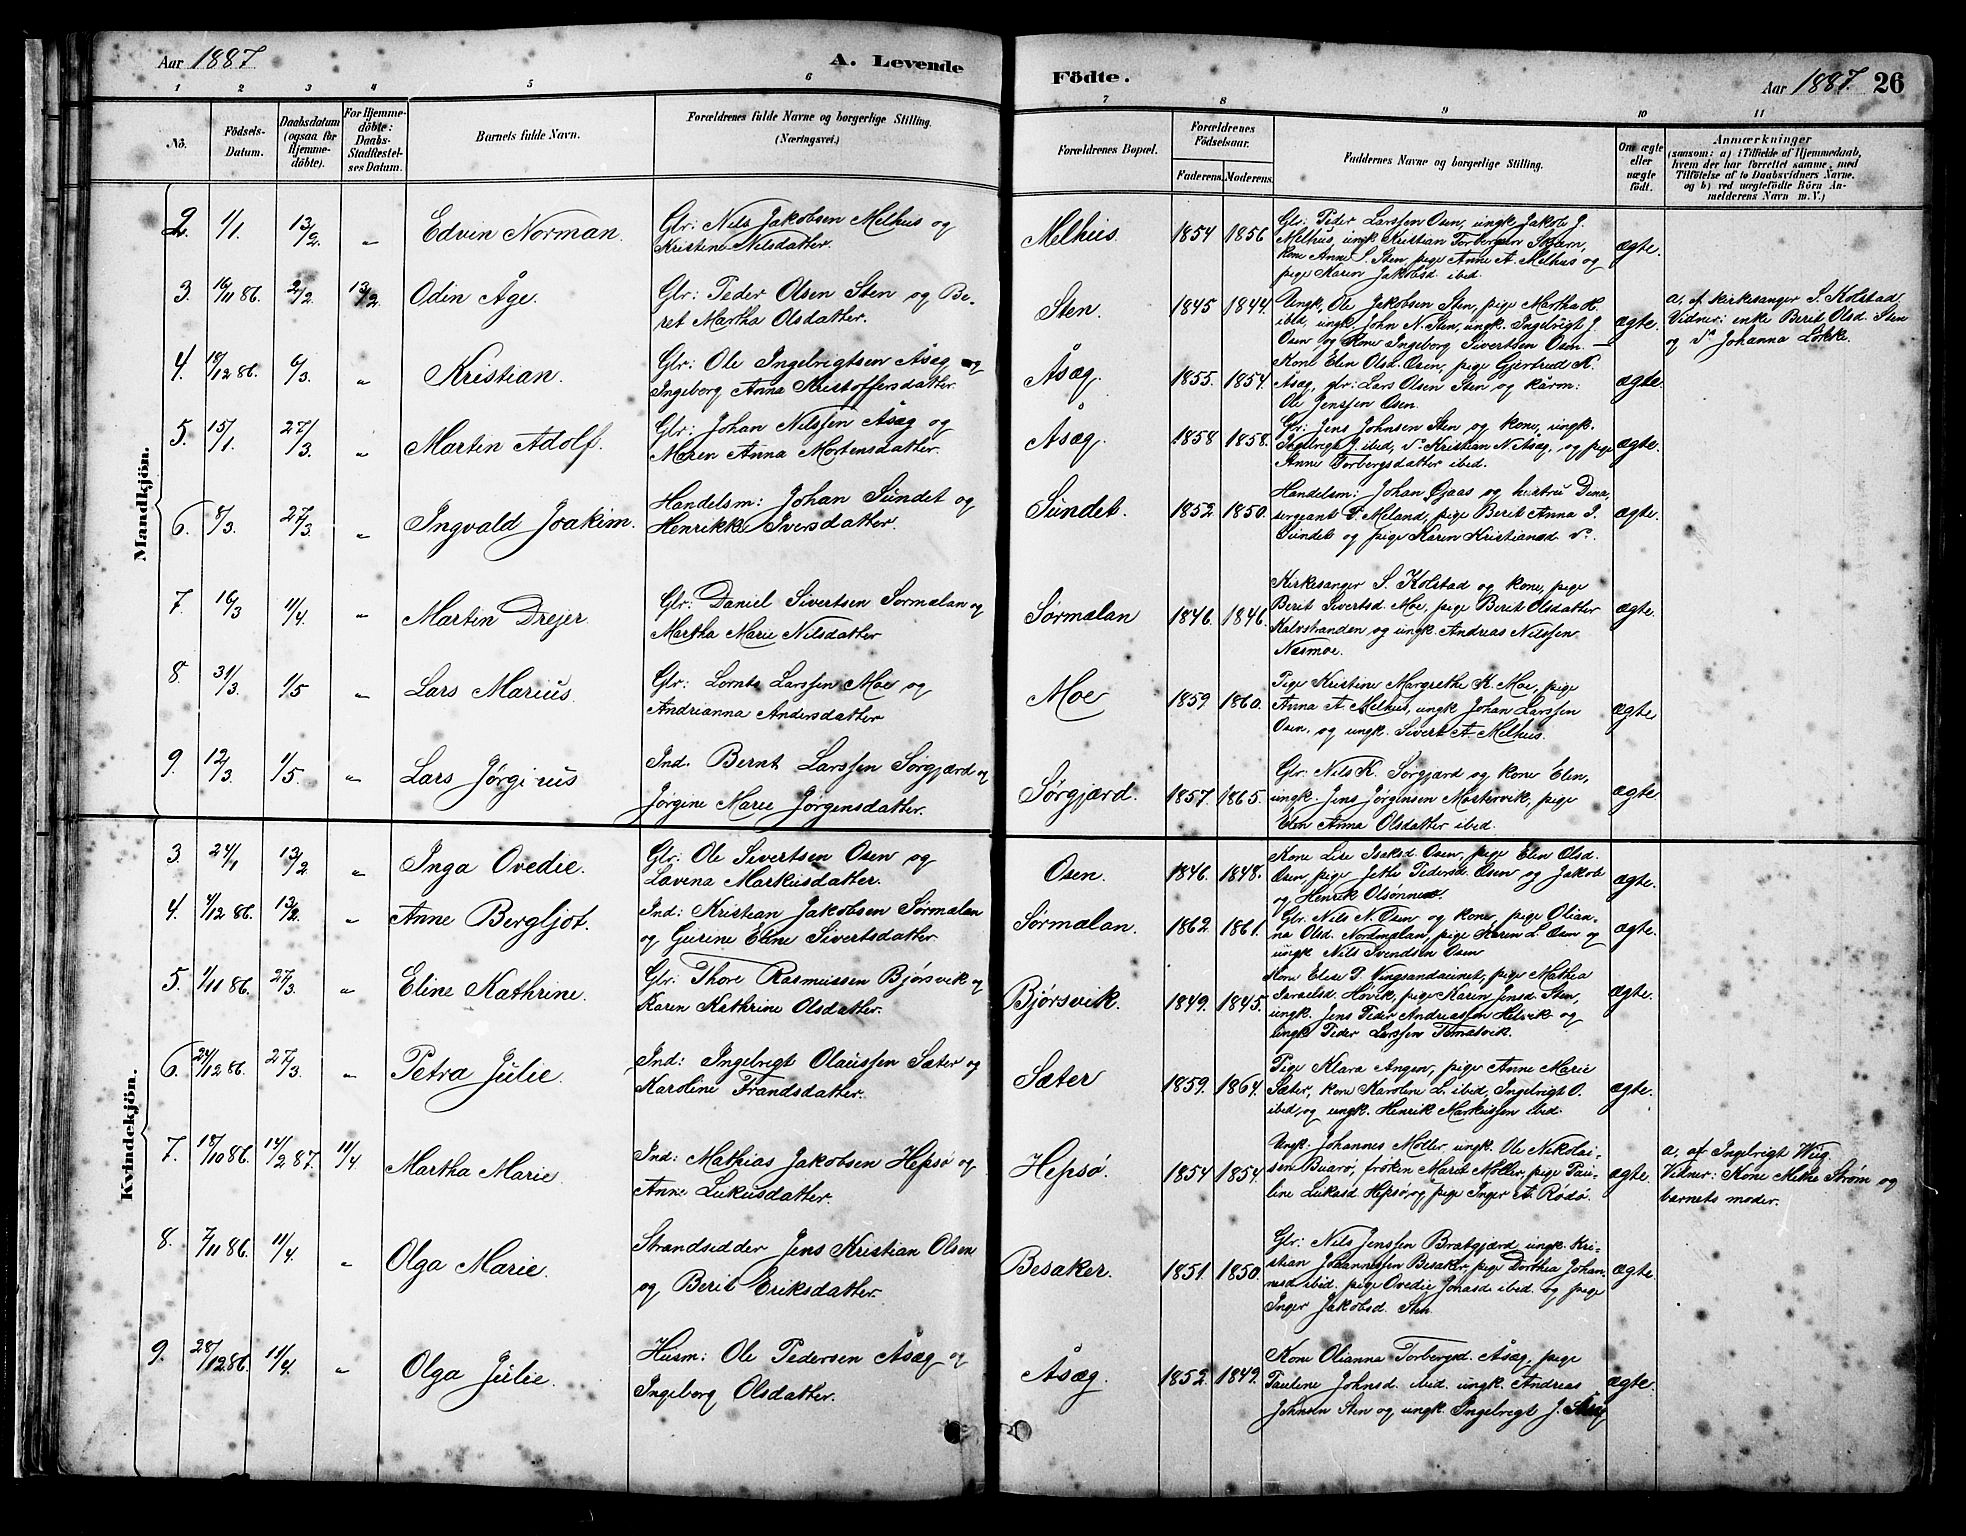 Aar 1887. A. Levende
Födte. Aar 1887. 26
1 2 3 4 5 6
7 8 9 10 11
No.
Födsels-Datum.
Daabsdatum (ogsaa for Hjemme-döbte).
For Hjemme-döbte: Daabs-Stadfæstelses Datum.
Barnets fulde Navn.
Forældrenes fulde Navne og borgerlige Stilling.
(Næringsvei.)
Forældrenes Bopæl.
Forældrenes Födselsaar.
Faderens. Moderens.
Faddernes Navne og borgerlige Stilling.
Om ægte eller uægte födt.
Anmærkninger
(saasom: a) i Tilfælde af Hjemmedaab,
hvem der har forrettet samme, med
Tilföielse af to Daabsvidners Navne.
og b) ved uægtefödte Börn An-
melderens Navn m. V.)
Mandkjön.
2. 1/1. 13/2 " Edvin Norman. Glr: Nils Jakobsen Melhus og
Kristine Nilsdatter.
Melhus. 1854 1856
Glr: Peder Larssen Osen, ungk. Jakob J.
Melhus, ungk. Kristian Torbergsen Skjærn,
kone Anne S. Sten, pige Anne A. Melhus og
pige Karen Jakobsd. ibid.
ægte.
3. 16/11 86. 2/2. 13/2 Odin Åge. Glr: Peder Olsen Sten og Be-
ret Martha Olsdatter.
Sten. 1845 1844.
Ungk. Ole Jakobsen Sten, pige Martha H.
ibid, ungk. John N. Sten, ungk. Ingebrigt J.
Osen og kone Ingeborg Sivertsen Osen.
ægte.
a, af kirkesanger S. Kolstad
Vidner: enke Berit Olsd. Sten
og do Johanna Løkke.
4. 18/12 86. 6/3. " Kristian. Glr: Ole Ingebrigtsen Åsæg og
Ingeborg Anna Kristoffersdatter.
Åsæg. 1855. 1854.
Kone Elen Olsd. Osen, pige Gjertrud K.
Åsæg, glr: Lars Olsen Sten og kårm:
Ole Jenssen Osen.
ægte
5. 15/1. 27/3 " Martin Adolf. Glr: Johan Nilssen Åsæg og
Maren Anna Mortensdatter.
Åsæg. 1858 1858.
Glr: Jens Johnsen Sten og kone, ungk.
Ingebrigt J. ibid, do Kristian N. Åsæg, og pige
Anne Torbergsdatter ibid.
ægte.
6. 8/3. 27/3. " Ingvald Joakim. Handelsm: Johan Sundet og
Henrikke Iversdatter.
Sundet. 1852 1850.
Handelsm: Johan Gjaas og hustru Dina,
sergeant P. Meland, pige Berit Anna J.
Sundet og pige Karen Kristiansd do.
ægte.
7. 16/3 11/4. " Martin Drejer. Glr: Daniel Sivertsen Sørmalan og
Martha Marie Nilsdatter
Sørmalan 1846. 1846.
Kirkesanger S. Kolstad og kone, pige
Berit Sivertsd. Moe, pige Berit Olsdatter
Kalvstranden og ungk. Andreas Nilssen
Næsmoe.
ægte.
8. 31/3. 1/5 " Lars Marius. Glr: Lornts Larssen Moe og
Andrianna Andersdatter
Moe 1859 1860.
Pige Kristine Margrethe K. Moe, pige
Anna A. Melhus, ungk Johan Larssen
Osen, og ungk. Sivert A. Melhus.
ægte
9. 12/3. 1/5 " Lars Jørginus Ind. Bernt Larssen Sørgjærd og
Jørgine Marie Jørgensdatter.
Sørgjærd. 1857. 1865.
Glr: Nils K. Sørgjærd og kone Elen,
ungk. Jens Jørgensen Mostervik, pige
Elen Anna Olsdatter ibid.
ægte.
Kvindekjön.
3. 24/1 13/2 " Inga Ovedie. Glr: Ole Sivertsen Osen og
Lavena Markusdatter.
Osen. 1846. 1848.
Kone Lise Isaksd. Osen, pige Elen Olsd.
Osen, pige Jethe Pedersd. Osen og Jakob
og Henrik Olsønner
ægte.
4. 4/12 86. 13/2. " Anne Bergljot. Ind: Kristian Jakobsen Sørmalan
og Gurine Eline Sivertsdatter.
Sørmalan. 1862 1861.
Glr. Nils N. Osen og kone, pige Olian-
na Olsd. Nordmalan, pige Karen L. Osen og
ungk Nils Svendsen Osen
ægte.
5. 1/11 86. 27/3. " Eline Kathrine. Glr: Thore Rasmussen Bjørsvik og
Karen Kathrine Olsdatter.
Bjørsvik. 1849. 1845.
Kone Elise P. Vingsandaunet, pige Mathea
Israelsd. Høvik, pige Karen Jensd. Sten,
ungk. Jens Peder Andreassen Helvik og
ungk Peder Larssen
ægte.
6. 24/12 86. 27/3. " Petra Julie. Ind: Ingebrigt Olaussen Sæter og
Karoline Frandsdatter.
Sæter 1859. 1864.
Pige Klara Angen, pige Anne Marie
Sæter, kone Karoline L. ibid, Ingebrigt O.
ibid, og ungk. Henrik Markussen ibid.
ægte.
7. 18/10 86. 14/2 87. 11/4 Martha Marie. Ind: Mathias Jakobsen Hepsø og
Anne Lukasdatter.
Hepsø. 1854 1854.
Ungk. Johannes Møller, ungk. Ole Nikolai-
sen Buarø, frøken Marit Møller, pige Pau-
line Lukasd Hepsø og pige Inger A. Rødø.
ægte.
a, af Ingebrigt Wiig.
Vidner: Kone Methe Strøm og
barnets moder.
8. 7/11 86. 11/4. " Olga Marie. Strandsidder Jens Kristian Olsen
og Berit Eriksdatter.
Besaker. 1851. 1850.
Glr: Nils Jenssen Brætgjærd ungk. Kri-
stian Johannessen Besaker, pige Dorthea Johan-
nesd ibid. pige Ovedie Jonasd ibid. og pige
Inger Jakobsd. Sten.
ægte.
9. 28/12 86. 11/4. " Olga Julie. Husm: Ole Pedersen Åsæg og
Ingeborg Olsdatter.
Åsæg. 1852. 1849.
Kone Olianna Torbergsd. Åsæg, pige
Pauline Johnsd. ibid. ungk. Andreas
Johnsen Sten og ungk. Ingebrigt J. Åsæg
ægte.